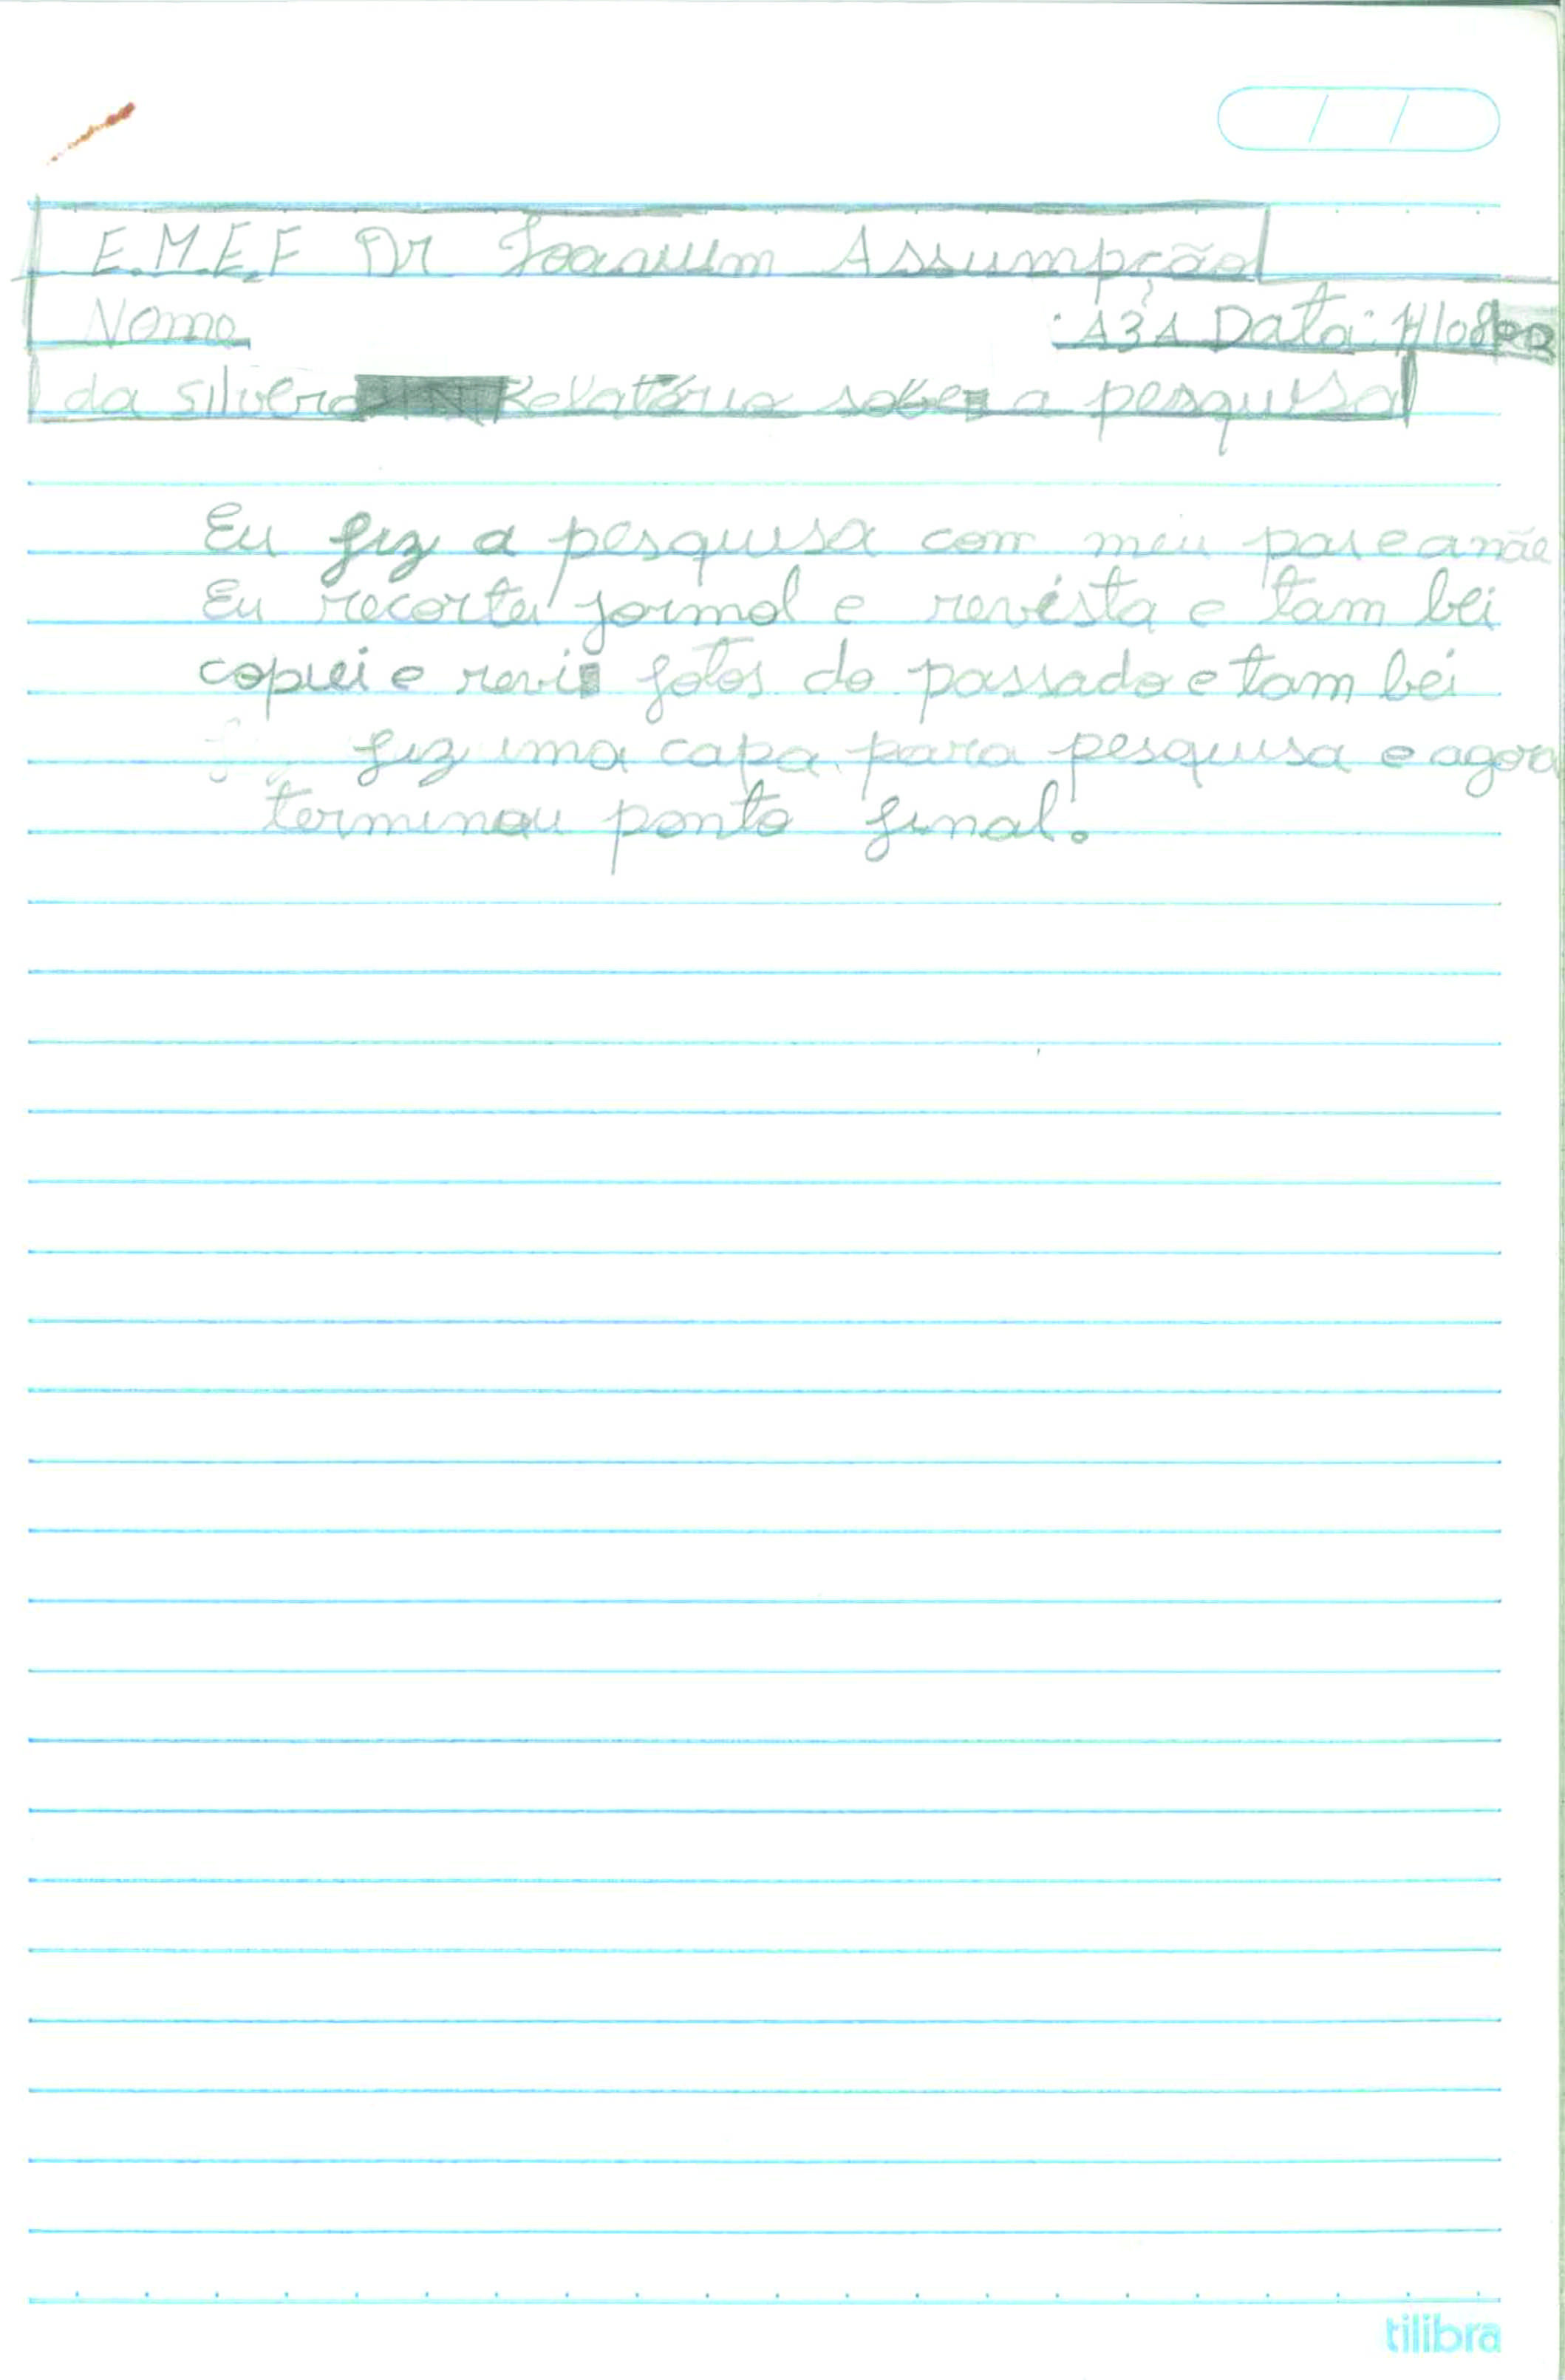 E.M.E.F Dr Joaquim Assumpção
Nome : A31 Data:
da silvera Relatório sobre a pesquisa
Eu fiz a pesquisa com meu pai e a mãe
Eu recortei jormal e revista e tam bei
copiei e revi fotos do passado e tam bei
fiz uma capa para pesquisa e agora
terminou ponto final.
tilibra